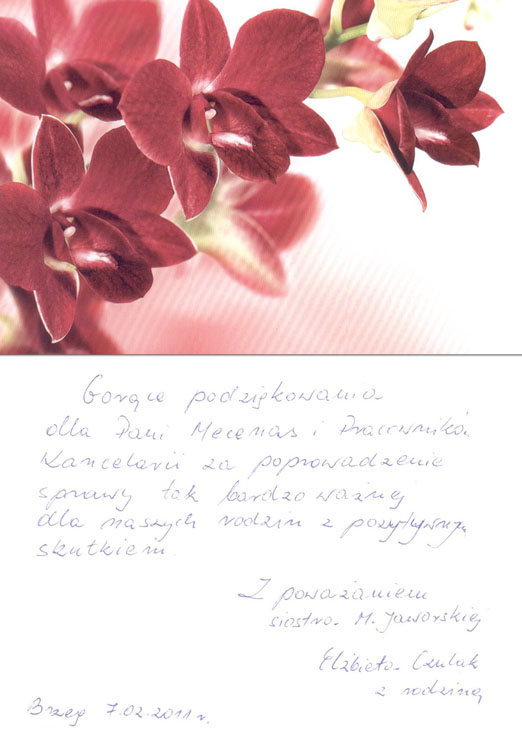 Gorące podziękowania
dla Pani Mecenas i Pracowników
Kancelarii za poprowadzenie
sprawy tak bardzo ważnej
dla naszych rodzin z pozytywnym
skutkiem.
Z poważaniem
siostra M. Jaworskiej
Elżbieta Czulak
z rodziną
Brzeg 7.02.2011 r.